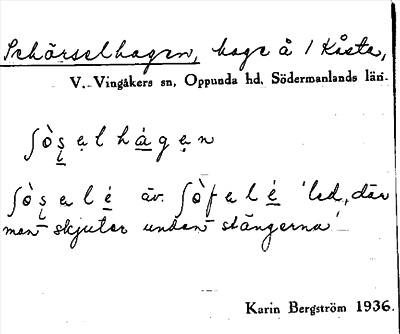 Schörselhagen, hage å 1 Kåsta,
V. Vingåkers sn, Oppunda hd, Södermanlands län.
ʃòşalhágan
ʃòşalé äv. ʃòfalé 'led, där
man skjuter undan stängerna'
Karin Bergström 1936.